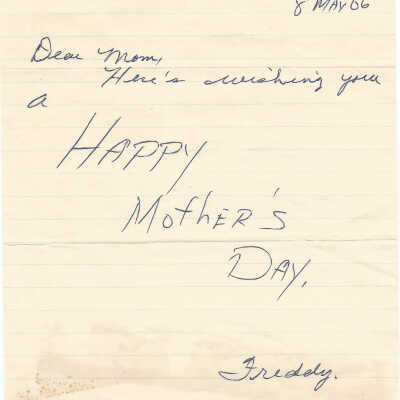 8 MAY 06
Dear Mom,
Here's wishing you
a
HAPPY
MotHER'S
DAY,
Freddy.